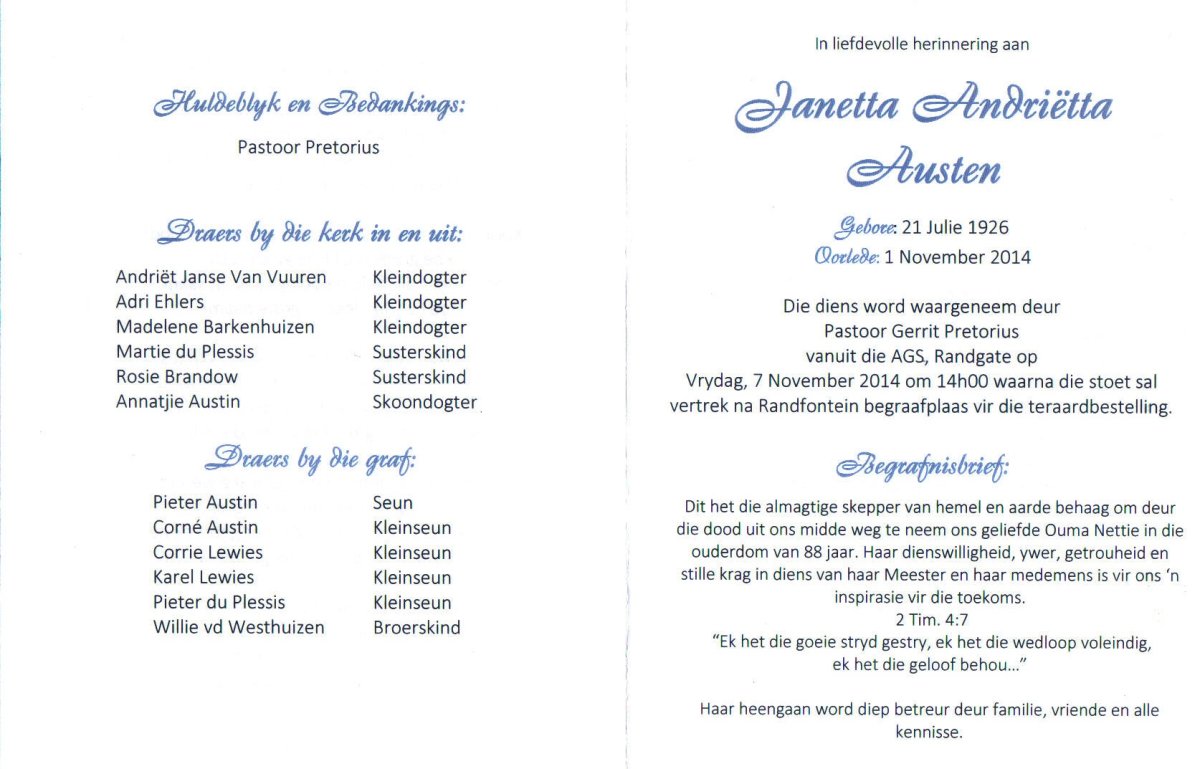 Huldeblyk en Bedankings:
Pastoor Pretorius
Draers by die kerk in en uit:
Andriët Janse Van Vuuren Kleindogter
Adri Ehlers Kleindogter
Madelene Barkenhuizen Kleindogter
Martie du Plessis Susterskind
Rosie Brandow Susterskind
Annatjie Austin Skoondogter
Draers by die graf:
Pieter Austin Seun
Corné Austin Kleinseun
Corrie Lewies Kleinseun
Karel Lewies Kleinseun
Pieter du Plessis Kleinseun
Willie vd Westhuizen Broerskind
In liefdevolle herinnering aan
Janetta Andriëtta
Austen
Gebore: 21 Julie 1926
Oorlede: 1 November 2014
Die diens word waargeneem deur
Pastoor Gerrit Pretorius
vanuit die AGS, Randgate op
Vrydag, 7 November 2014 om 14h00 waarna die stoet sal
vertrek na Randfontein begraafplaas vir die teraardbestelling.
Begrafnisbrief:
Dit het die almagtige skepper van hemel en aarde behaag om deur
die dood uit ons midde weg te neem ons geliefde Ouma Nettie in die
ouderdom van 88 jaar. Haar dienswilligheid, ywer, getrouheid en
stille krag in diens van haar Meester en haar medemens is vir ons ‘n
inspirasie vir die toekoms.
2 Tim. 4:7
“Ek het die goeie stryd gestry, ek het die wedloop voleindig,
ek het die geloof behou…”
Haar heengaan word diep betreur deur familie, vriende en alle
kennisse.